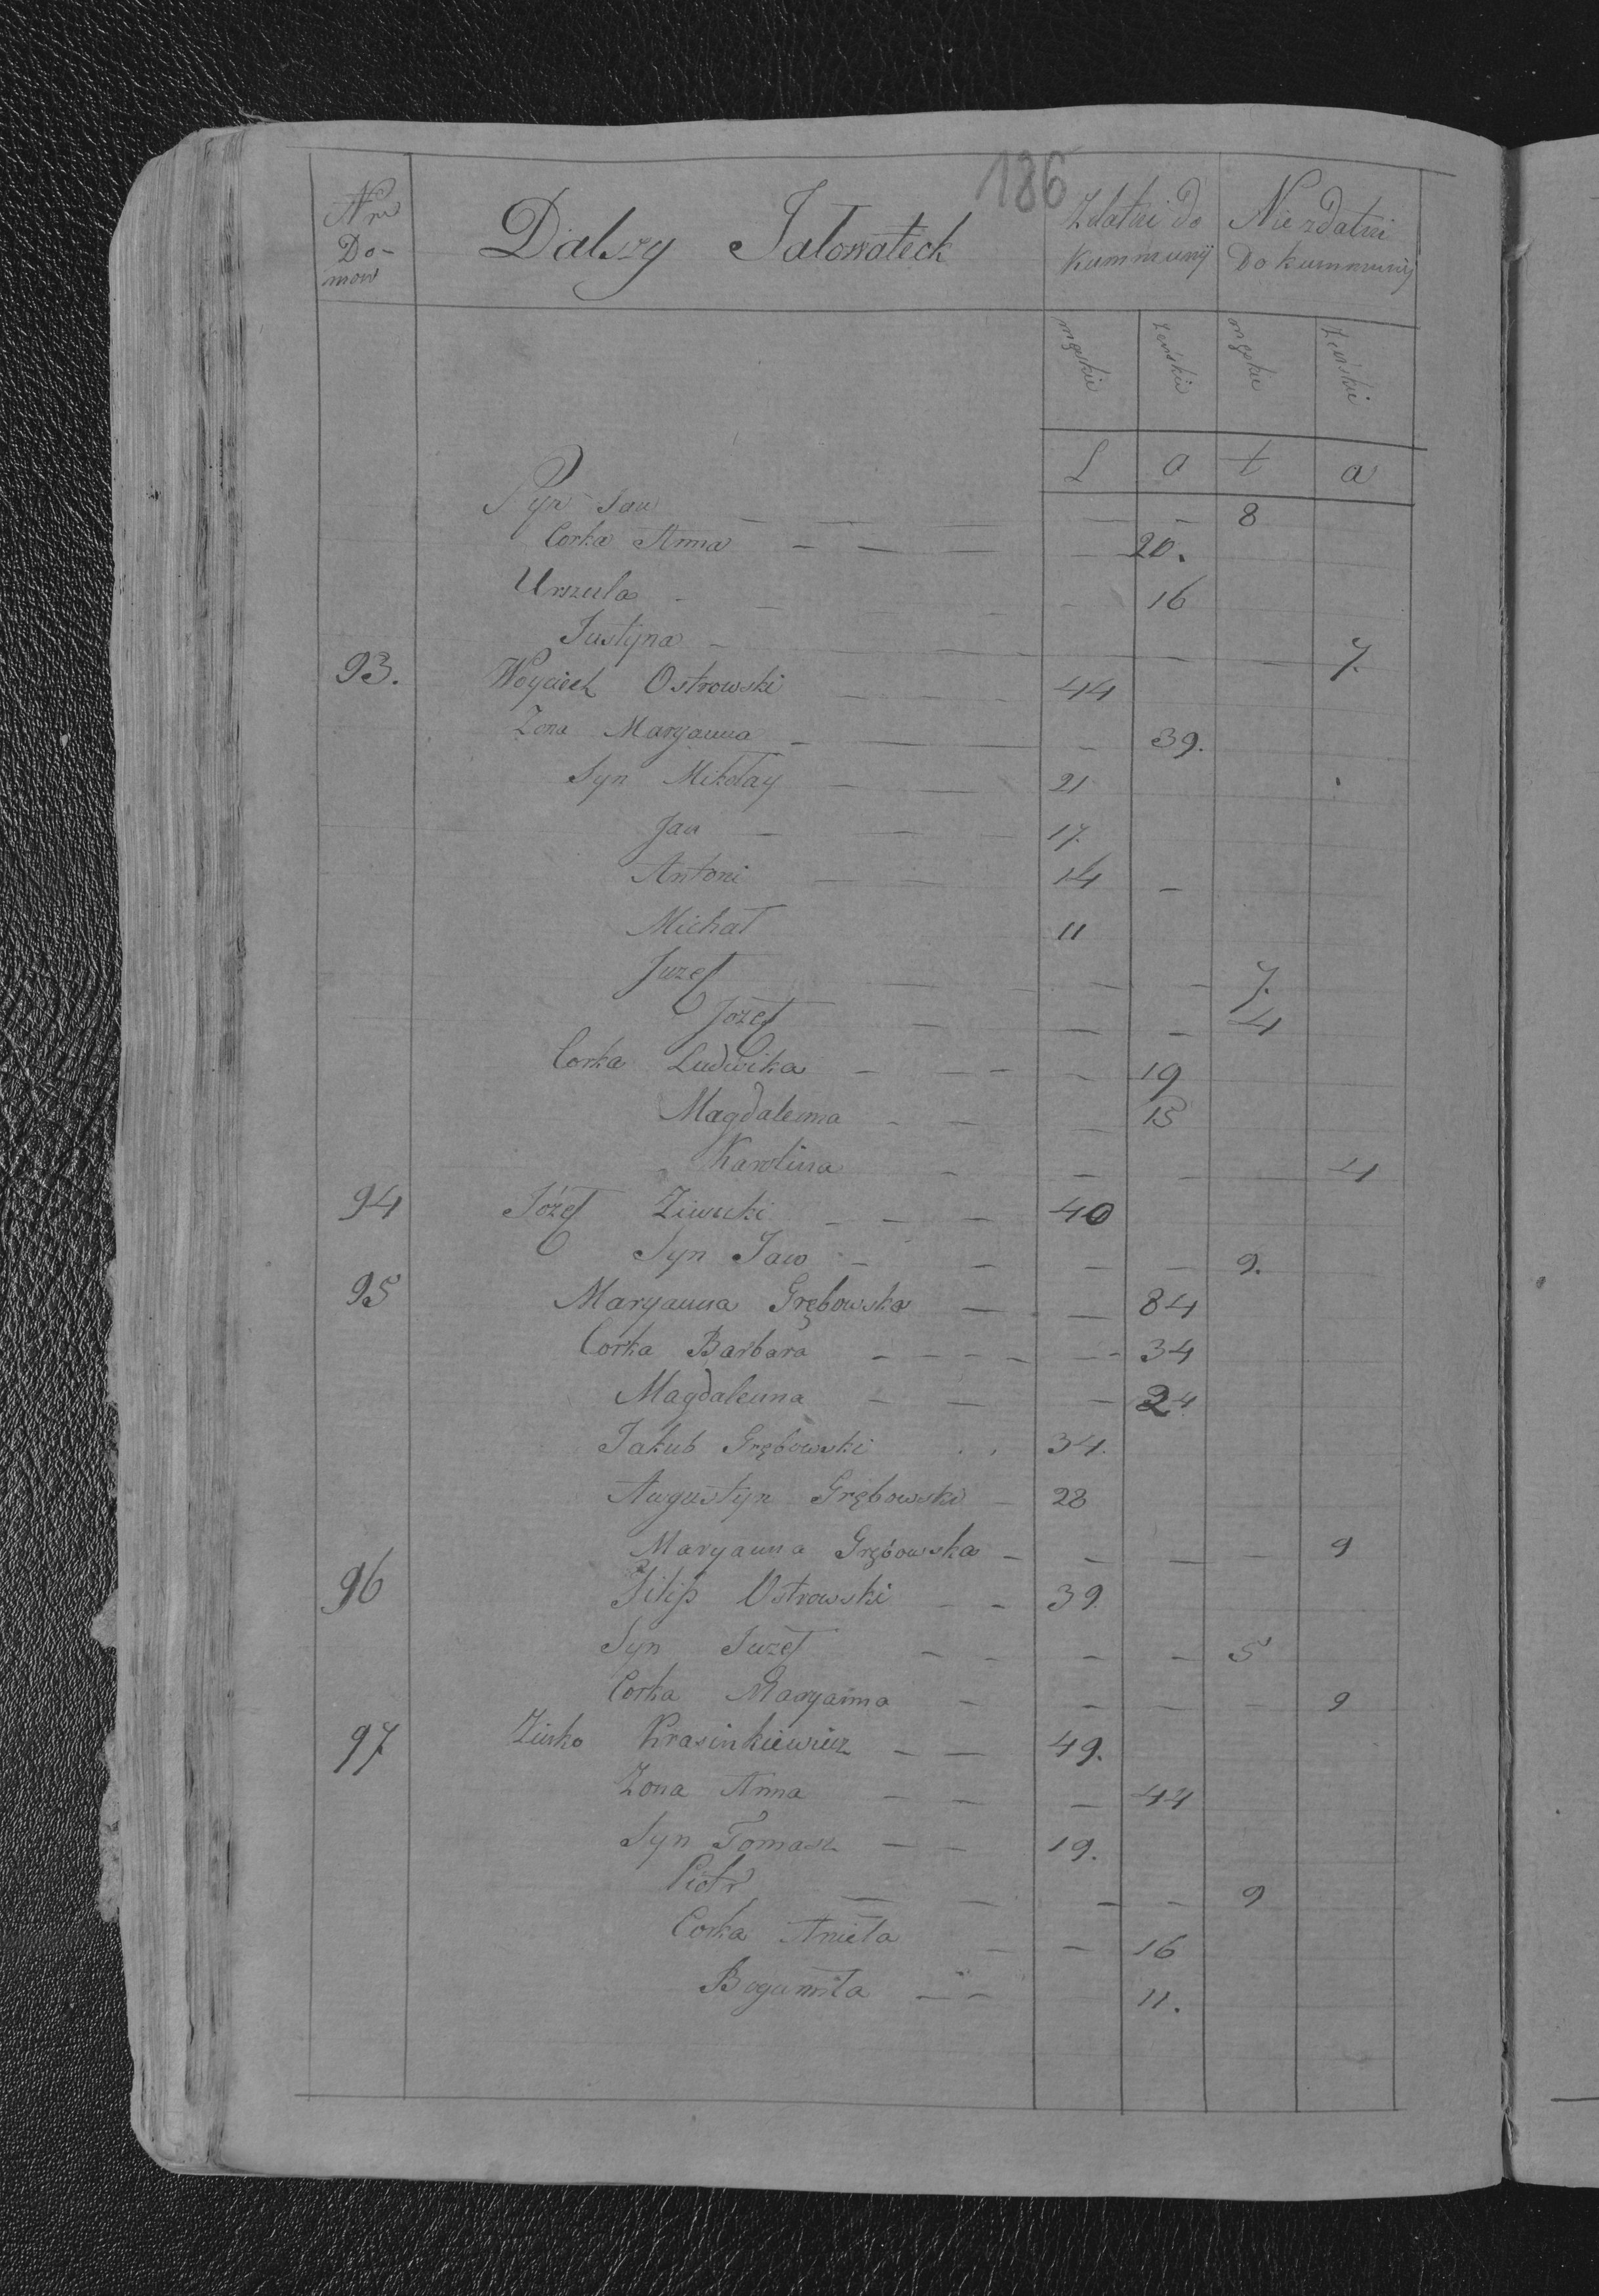 186
Nra Do-mow Dalszy Jałowateck Zdatni do Kummunij Nie zdatni Do kummunij
męskie żeńskie męskie żeńskie
L a t a
Syn Jan — — — — - 8
Corka Anna — — — — 20.
Urszula - - - - 16
Justyna - — — — — — 7.
93. Woyciech Ostrowski — — — 44
Zona Maryanna - — — — - 39.
Syn Mikołay — — — 21
Jan — — — 17.
Antoni — — 14 -
Michał 11
Juzef — — — — 7.
Jozef — — — 4
Corka Ludwika — — - - - 19
Magdalenna - — — 15
Karolina - - - - 4
94 Józef Ziwucki - - — 40
Syn Jaw - - — — — 9.
95 Maryanna Grębowska — — 84
Corka Barbara — - - - - - 34
Magdalenna — — — 24
Jakub Grębowski . . 34.
Augustyn Grębowski — 28
Maryanna Grębowska — — — — 9
96 Filip Ostrowski — - 39.
Syn Juzef - - - - 5
Corka Maryanna - - - - 9
97 Krasinkiewicz — — 49.
Zona Anna — — — 44
Syn Tomasz — — 19.
Piotr — — — — 9
Corka Anieła — — 16
Bogumiła — - 11.